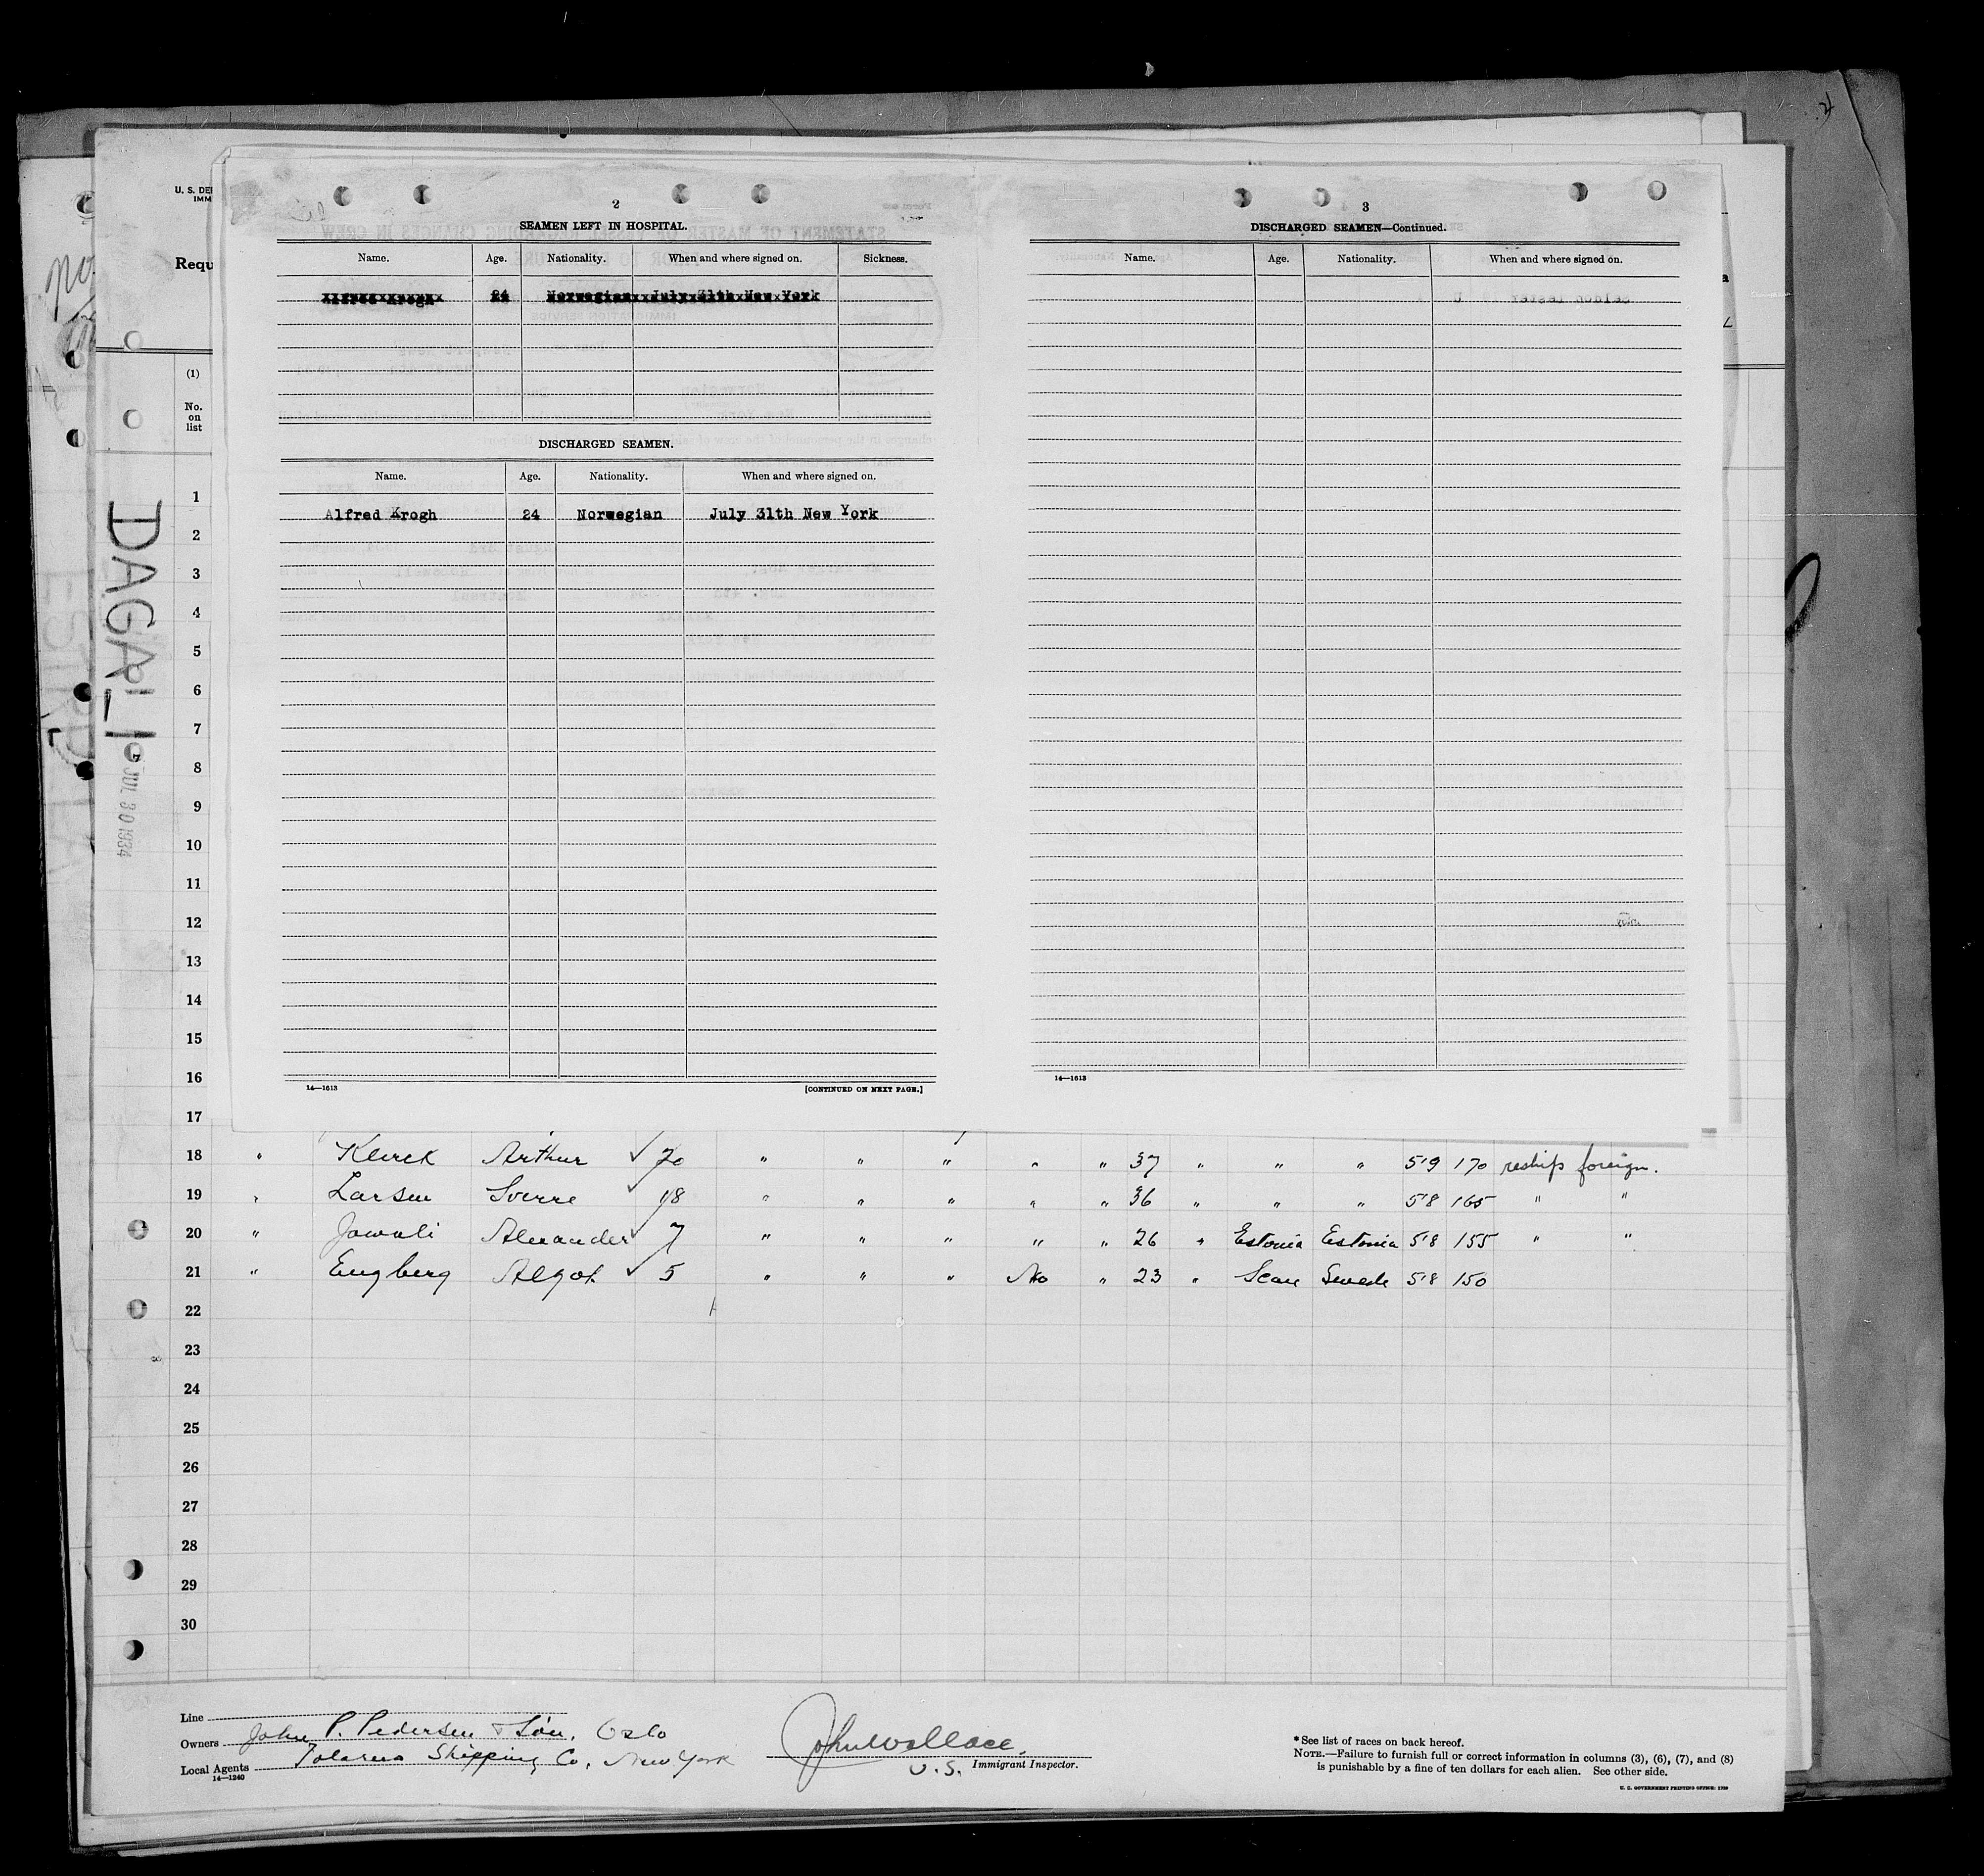 U. S. DE
IMM
Requ
(1)
No.
on
list
DAGALI
JUL 30 1934
2
SEAMEN LEFT IN HOSPITAL.
Name. Age. Nationality. When and where signed on. Sickness.
Alfred Krogh 24 Norwegian July 31th New York
DISCHARGED SEAMEN.
Name. Age. Nationality. When and where signed on.
Alfred Krogh 24 Norwegian July 31th New York
14—1613 [CONTINUED ON NEXT PAGE.]
3
DISCHARGED SEAMEN—Continued.
Name. Age. Nationality. When and where signed on.
14—1613
1
2
3
4
5
6
7
8
9
10
11
12
13
14
15
16
17
18 " Klerck Arthur ✓ 20 " " " " " 37 " " " 5'9 170 reships foreign.
19 " Larsen Sverre ✓ 18 " " " " " 36 " " " 5'8 165 " "
20 " Alexander ✓ 7 " " " " " 26 " Estonia Estonia 5'8 155 " "
21 " Engberg Algot ✓ 5 " " " No " 23 " Scan Swede 5'8 150
22
23
24
25
26
27
28
29
30
Line
Owners John P. Pedersen & Son, Oslo
Local Agents Shipping Co, New York
14—1240
John Wallace.
U.S. Immigrant Inspector.
* See list of races on back hereof.
NOTE.—Failure to furnish full or correct information in columns (3), (6), (7), and (8)
is punishable by a fine of ten dollars for each alien. See other side.
U. S. GOVERNMENT PRINTING OFFICE: